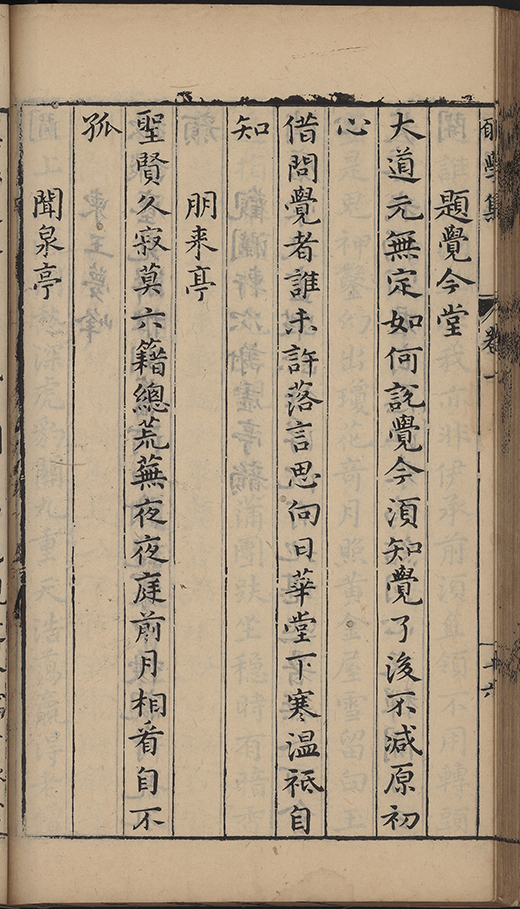 學集
卷一
十六
題覺今堂
大道元無定如何說覺今須知覺了後不減原初
心
借問覺者誰未許落言思向日華堂下寒温祗自
知
朋来亭
聖賢久寂莫六籍總荒蕪夜夜庭前月相看自不
孤
聞泉亭